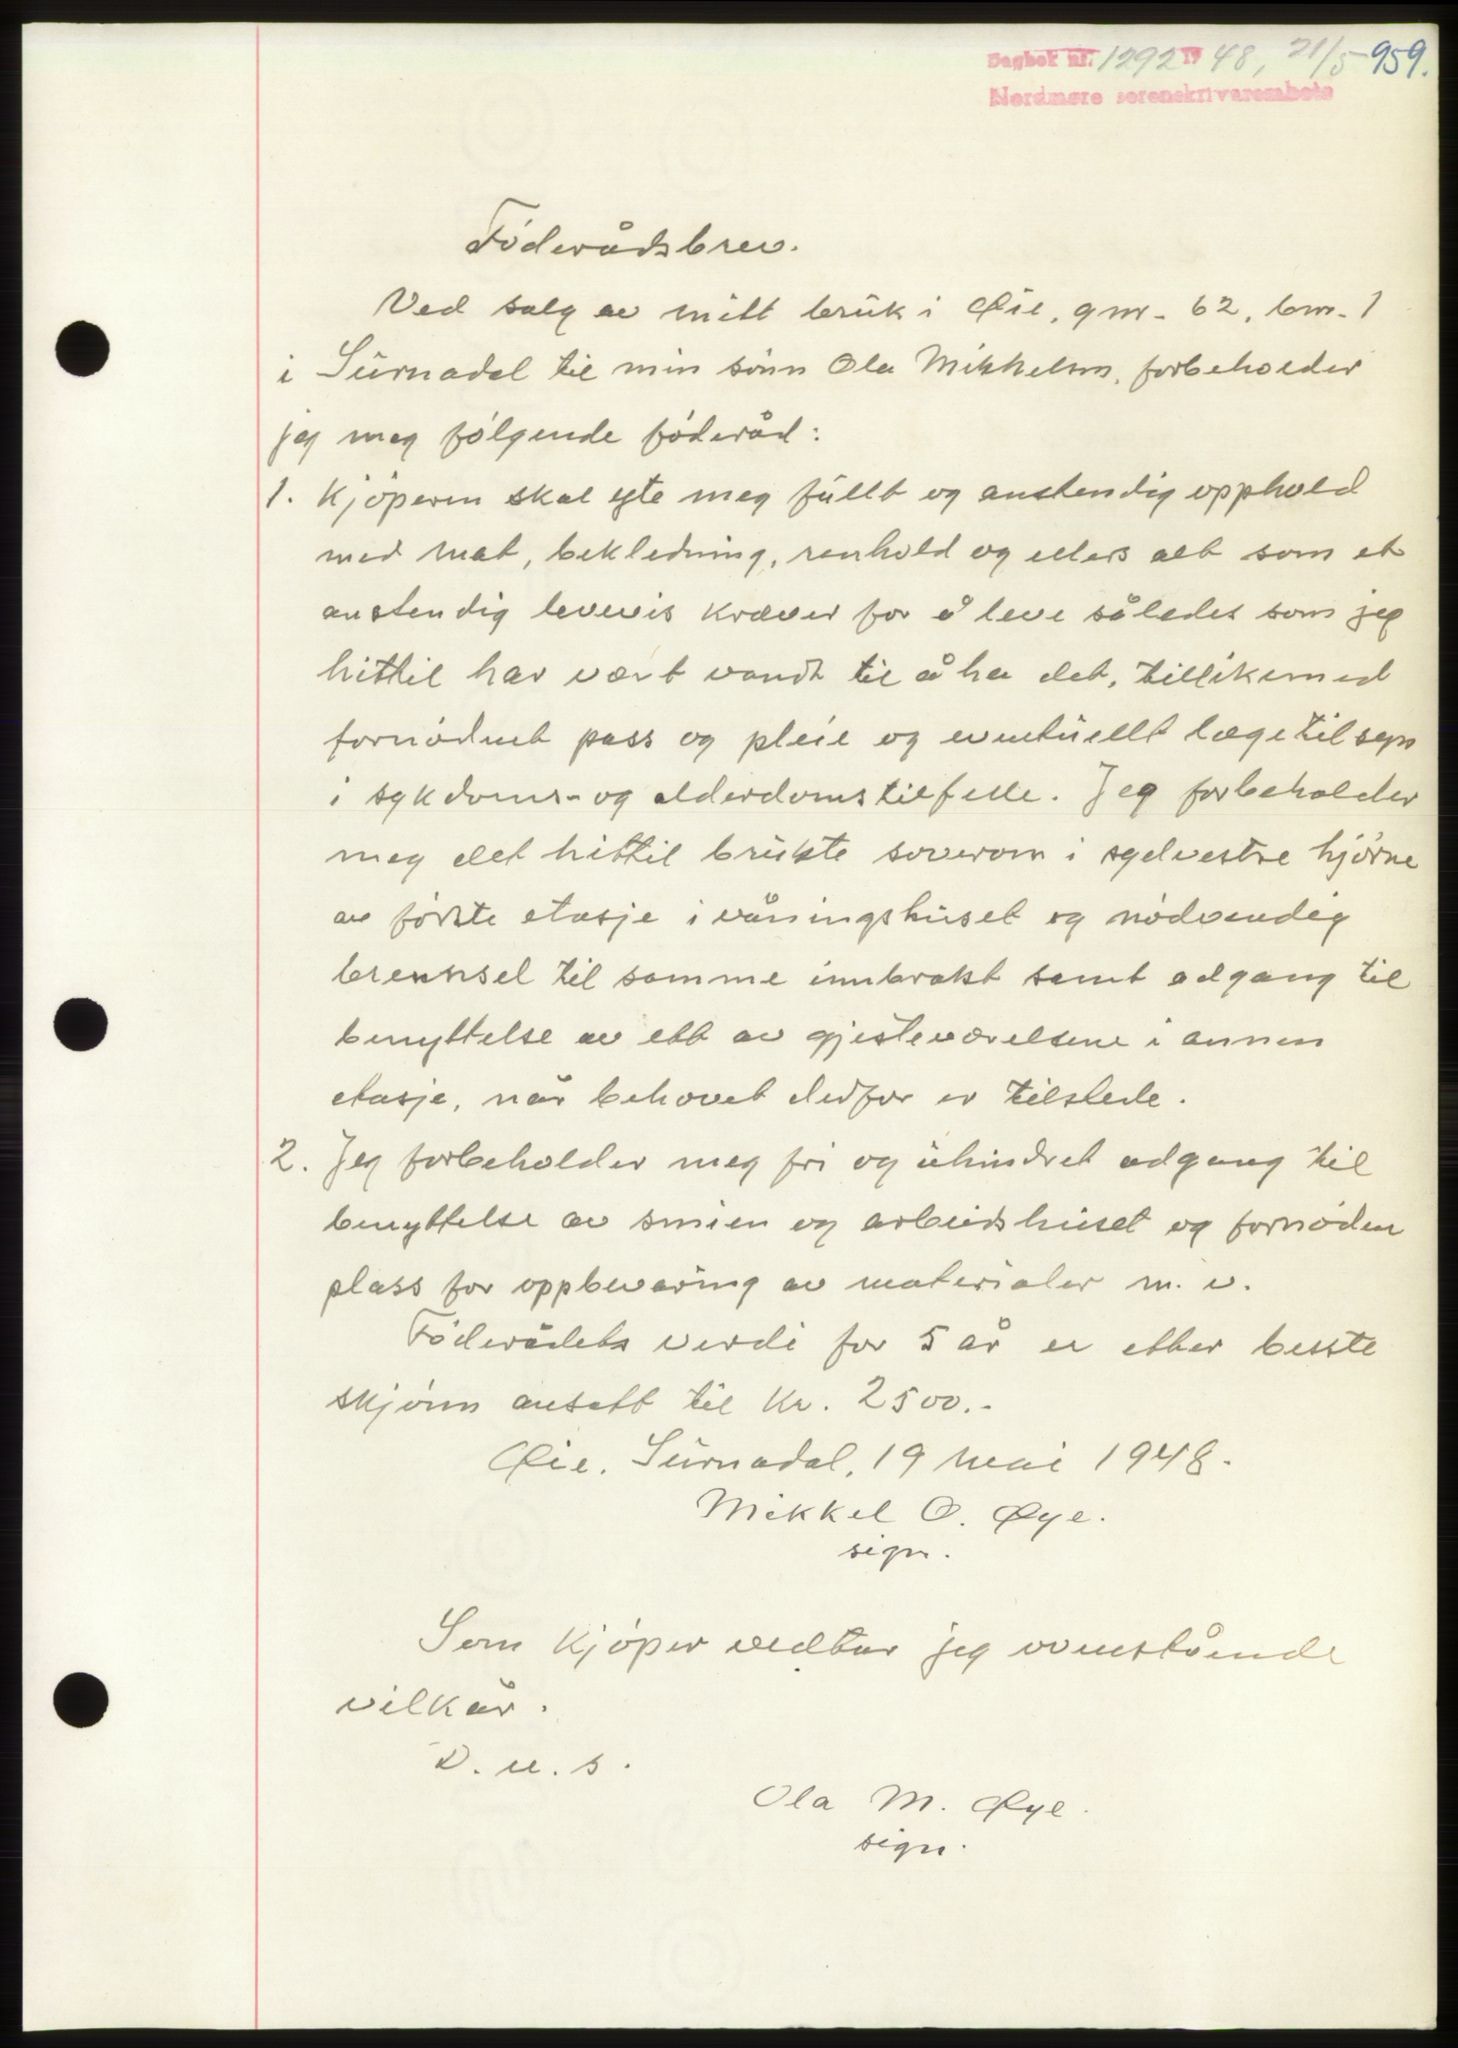 Dagbok nr. 1292 19 48, 21/5 959.
Nordmøre sorenskrivarembete
Föderådsbrev.
Ved salg av mitt bruk i Øie, gnr. 62, bnr. 1
i Surnadal til min sönn Ola Mikkelsen, forbeholder
jeg meg fölgende föderåd:
1. Kjöperen skal yte meg fullt og anstendig opphold
med mat, bekledning, renhold og ellers alt som et
anstendig levevis kræver for å leve således som jeg
hittil har vært vandt til å ha det, tillikemed
fornödent pass og pleie og eventuellt lægetilsyn
i sykdoms- og alderdomstilfelle. Jeg forbeholder
meg det hittil brukte soverom i sydvestre hjörne
av förste etasje i våningshuset og nödvendig
brennsel til samme innbrakt samt adgang til
benyttelse av ett av gjesteværelsene i annen
etasje, når behovet derfor er tilstede.
2. Jeg forbeholder meg fri og uhindret adgang til
benyttelse av smien og arbeidshuset og fornöden
plass for oppbevaring av materialer m. v.
Föderådets verdi for 5 år er etter besste
skjönn ansatt til kr. 2500.-
Øie, Surnadal, 19 mai 1948.
Mikkel O. Øye.
sign.
Som kjöper vedtar jeg ovenstående
vilkår.
D. u. s.
Ola M. Øye.
sign.